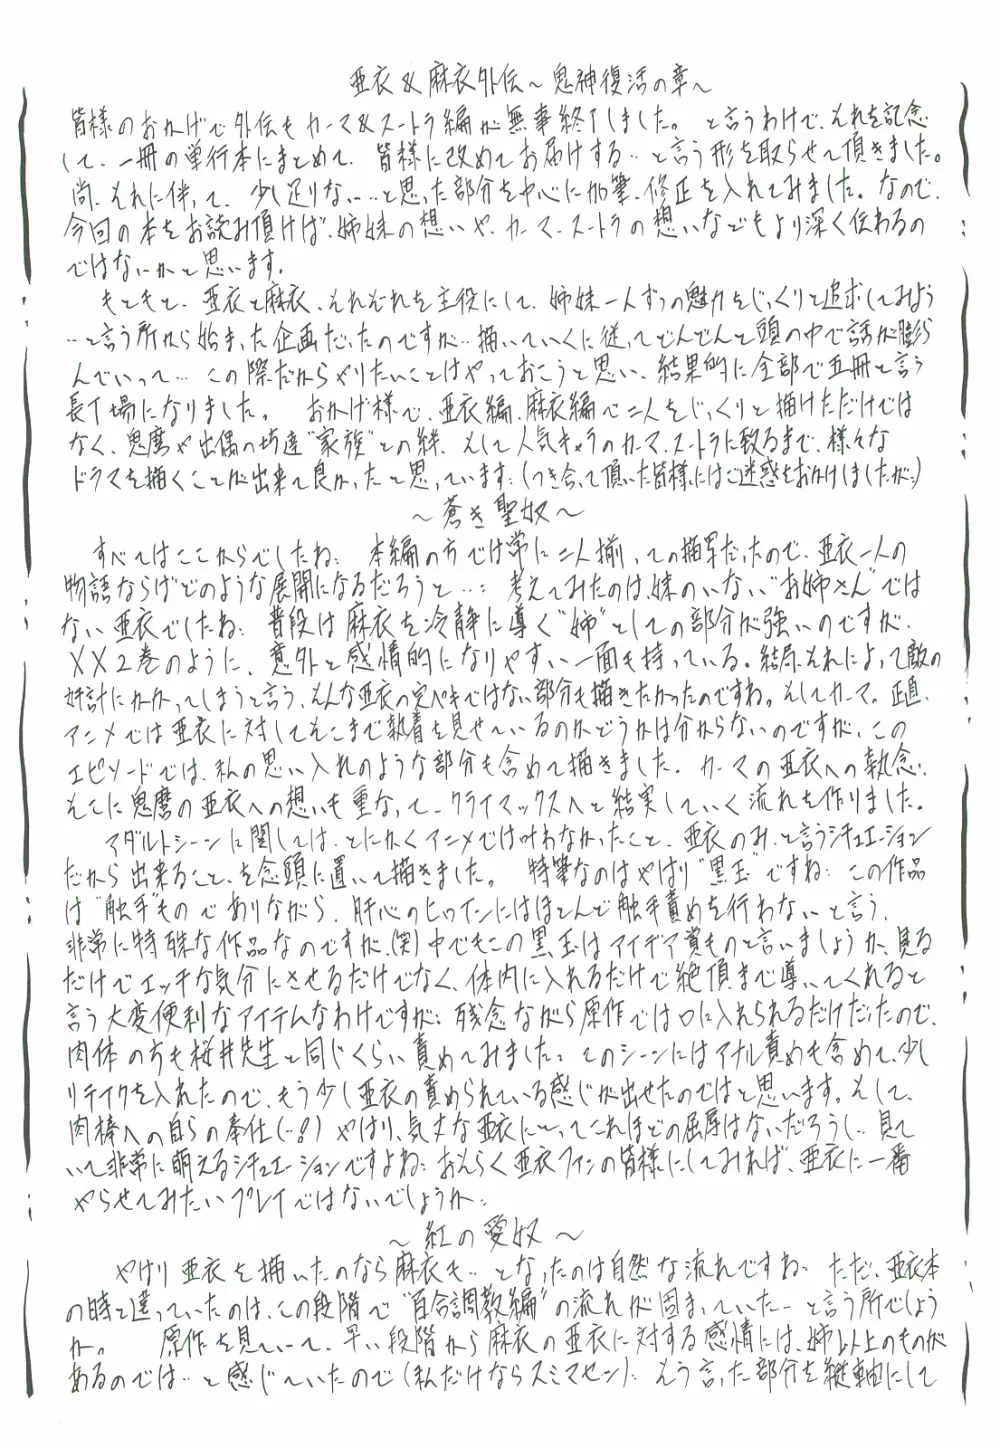 亜衣&麻衣外伝～鬼神復活の章～
皆様のおかげで外伝もカーマ&スートラ編が無事終了しました。と言うわけで、それを記念
して、一冊の単行本にまとめて、皆様に改めてお届けする…と言う形を取らせて頂きました。
尚、それに伴って、少し足りない…と思った部分を中心に加筆、修正を入れてみました。なので、
今回の本をお読み頂けば、姉妹の想いや、カーマ、スートラの想いなどもより深く伝わるの
ではないかと思います。
もともと、亜衣と麻衣、それぞれを主役にして、姉妹一人ずつの魅力をじっくりと追求してみよう
…と言う所から始まった企画だったのですが…描いていくに従ってどんどんと頭の中で話が膨ら
んでいって…この際だからやりたいことはやっておこうと思い、結果的に全部で五冊と言う
長丁場になりました。おかげ様で、亜衣編、麻衣編で二人をじっくりと描けただけでは
なく、鬼麿や出偶の坊達“家族”との絆、そして人気キャラのカーマ、スートラに致るまで、様々な
ドラマを描くことが出来て良かったと思っています:(つき合って頂いた皆様にはご迷惑をおかけしましたが:)
～蒼き聖奴～
すべてはここからでしたね: 本編の方では常に二人揃っての描写だったので、亜衣一人の
物語ならばどのような展開になるだろうと…: 考えてみたのは、妹のいない“お姉さん”では
ない亜衣でしたね: 普段は麻衣を冷静に導く“姉”としての部分が強いのですが、
XX2巻のように、意外と感情的になりやすい一面も持っている。結局、それによって敵の
奸計にかかってしまうと言う、そんな亜衣の完ペキではない部分も描きたかったのですね。そしてカーマ。正直、
アニメでは亜衣に対してそこまで執着を見せているのかどうかは分からないのですが、この
エピソードでは、私の思い入れのような部分も含めて描きました。カーマの亜衣への執念、
そこに鬼麿の亜衣への想いも重なって、クライマックスへと結実していく流れを作りました。
アダルトシーンに関しては、とにかくアニメでは叶わなかったこと、亜衣のみ、と言うシチュエーション
だから出来ること、を念頭に置いて描きました。特筆なのはやはり“黒玉”ですね: この作品
は“触手”ものでありながら、肝心のヒロインにはほとんど触手責めを行わないと言う、
非常に特殊な作品なのですが、(笑)中でもこの黒玉はアイデア賞ものと言いましょうか、見る
だけでエッチな気分にさせるだけでなく、体内に入れるだけで絶頂まで導いてくれると
言う大変便利なアイテムなわけですが: 残念ながら原作では口に入れられるだけだったので、
肉体の方も桜井先生と同じくらい責めてみました: このシーンにはアナル責めも含めて、少し
リテイクを入れたので、もう少し亜衣の責められている感じが出せたのではと思います。そして、
肉棒への自らの奉仕(…8) やはり、気丈な亜衣にとってこれほどの屈辱はないだろうし…見て
いて非常に萌えるシチュエーションですよね: おそらく亜衣ファンの皆様にしてみれば、亜衣に一番
やらせてみたいプレイではないでしょうか:
～紅の愛奴～
やはり亜衣を描いたのなら麻衣も…となったのは自然な流れですね、ただ、亜衣本
の時と違っていたのは、この段階で“百合調教編”の流れが固まっていた…と言う所でしょう
か。原作を見ていて、早い段階から麻衣の亜衣に対する感情には、姉以上のものが
あるのでは…と感じていたので(私だけならスミマセン): そう言った部分を縦軸にして